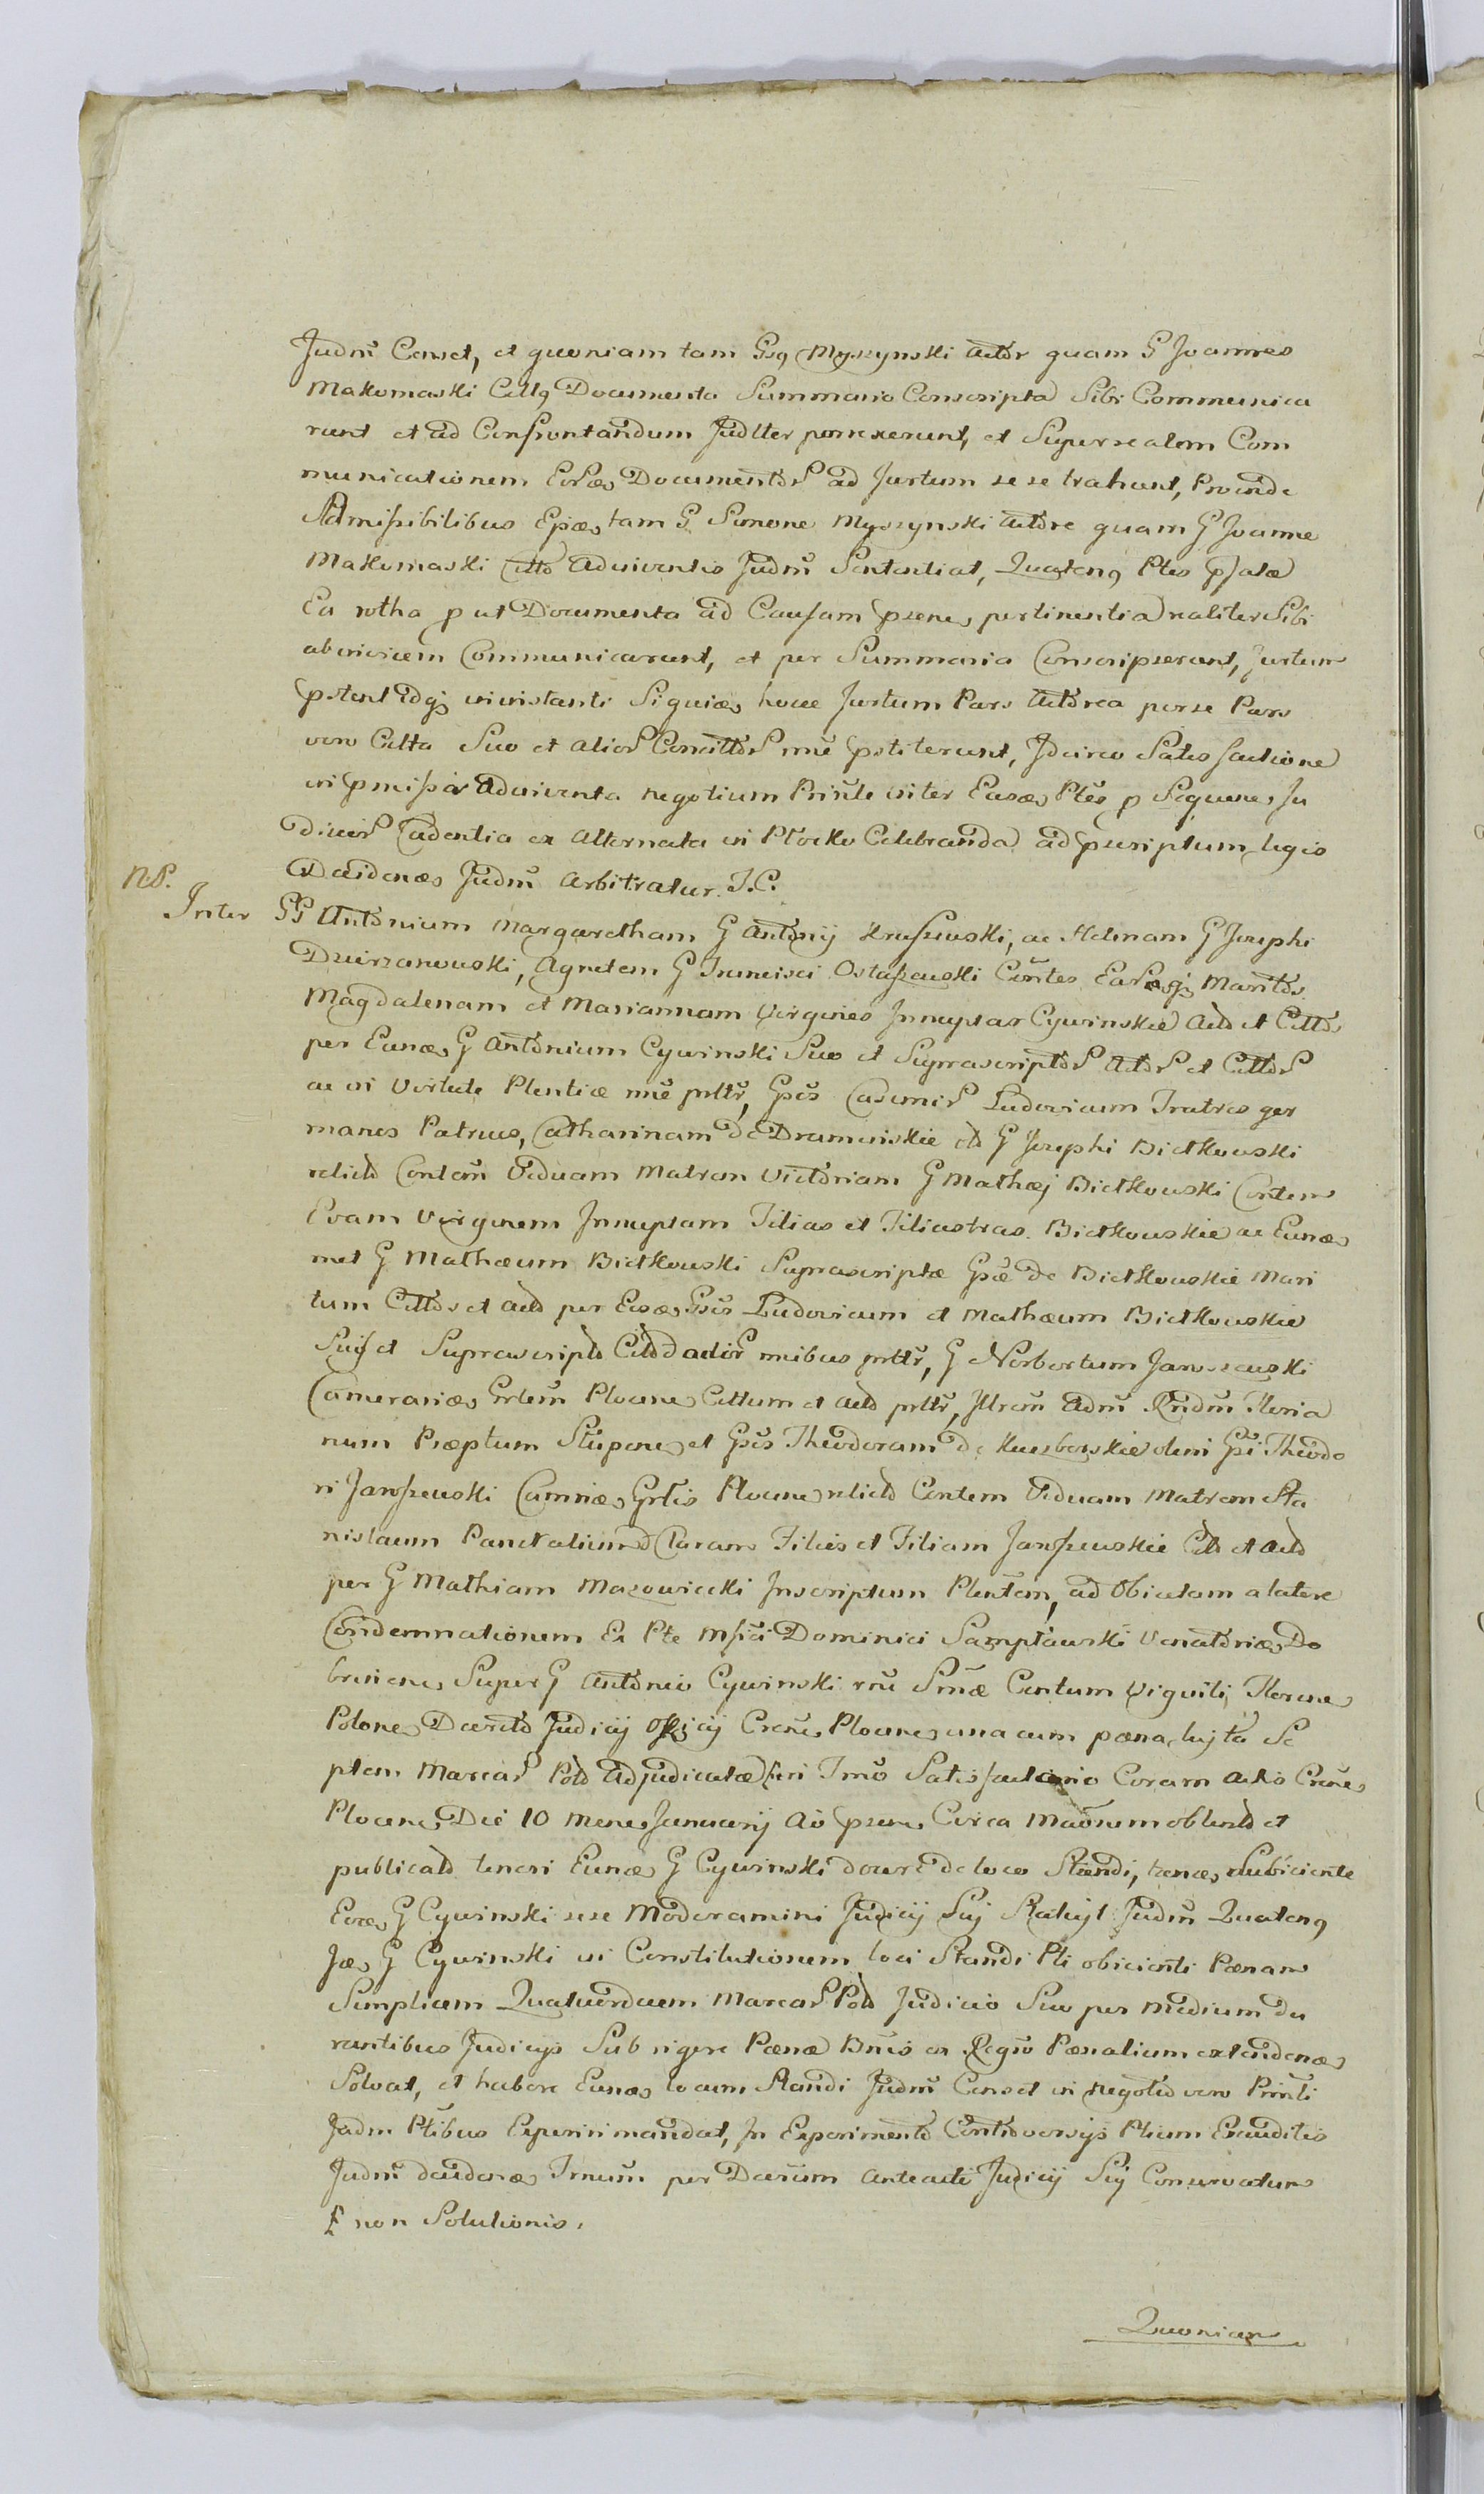 Judm̃ Censet, et quoniam tam Gsq Myszynski Actor quam G Joannes
Makomaski Cittq Documenta Summario Conscripta Sibi Communica
runt et ad Confrontandum Judlter porrexerunt, et Super realem Com
municationem Documentor ad Juramentum se se trahunt, Proinde
Admissibilibus tam G Simone Myszynski Actore quam G Joanne
Makomaski Citto adinventis Judm̃ Sententiat, Quatenq Ptes
Ea rotha p ut Documenta ad Causam psene pertinentia realiter Sibi
abinvicem Communicarunt, et per Summaria Conscripserunt, Jurtum
pstent idq in instanti Siquiæ houe Jurtum Pars Actorea per se Pars
vero Citta Suo et alior Concittor nñe pstiterunt, Idcirco Satisfactione
in pmissis adinventa negotium Prinle inter Easæ Ptes p Sequene Ju
dicior Cadentia ex alternata in Plocko Celebranda ad pscriptum legis
Decidenæ Judm̃ arbitratur. J.C.
N.P.
Inter GG Antonium Margaretham G Antonij Kruszewski, ac Helenam G Josephi
Dzierzanowski, Agnetem G Francisci Ostaszewski Cõntes Earæq Maritos
Magdalenam et Mariannam Virgines Innuptas Cywinskie Acto et Cittos
per Eunæ G Antonium Cywinski Suo et Suprascriptor Actor et Cittor
ac vi Virtute Plentiæ nñe prltr, Gsos Casimir Ludovicum Fratres ger
manos Patruos, Catharinam de Dramińskie G Josephi Bietkowski
relicta Contem̃ Viduam Matrem Victoriam G Mathæj Bietkowski Contem
Evam Virginem Innuptam Filias et Filiastras Bietkowskie ac Eunæ
met G Mathæum Bietkowski Suprascriptæ Gsæ de Bietkowskie Mari
tum Cittos et acto per Eosæ Gsos Ludovicum et Mathæum Bietkowskie
Suis et Suprascripto actor nñibus prltr, G Norbertum Janszewski
Cameraniæ Grlem̃ Plocene Cittum et acto prltr, Illrem̃ Adm̃ Rñdm̃ Floria
num Præptum Stupene et Gsos Theodoram de olim Gsi Theodo
ri Janszewski Camniæ Grlis Plocene relicta Contem Viduam Matrem Sta
nislaum Claram Filios et Filiam Janszewskie Cito et acto
per G Mathiam Mazowiecki Inscriptum Plentem, ad Obicutam a latere
Condemnationem Ex Pte Msici Dominici Venatoriæ Do
brinene Super G Antonio Cywinski rñe Smæ Centum Viginti Florene
Polone Decreto Judicij Officij Crene Plocene una cum pœna luita Se
ptem Marcar Polo Adjudicatæ Coram Actis Crene
Plocene Die 10 Mene Januarij Aõ psene Circa Maõnem obtento et
publicato teneri Eunæ G Cywinski docere de loco Standi, tenæ Subiciente
Eoæ G Cywinski sese Moderamini Judicij Sui Statuit Judm̃ Quatenq
Jæ G Cywinski in Constitutionem loci Standi Pti obicienti Pœnam
Simplicem Quatuordecem Marcar Polo Judicio Suo per medium du
rantibus Judicijs Sub rigore Pœnæ Bñis ex Regro Pœnalium extendenæ
Solvat, et habere Eunæ locum Standi Judm̃ Censet in negotio vero Prinli
Judm Ptibus Experiri mandat, In Experimento Controversijs Ptium Exauditis
Judm̃ per Decrum anteacti Judicij Sui Conservatum
non Solutionis.
Quoniam